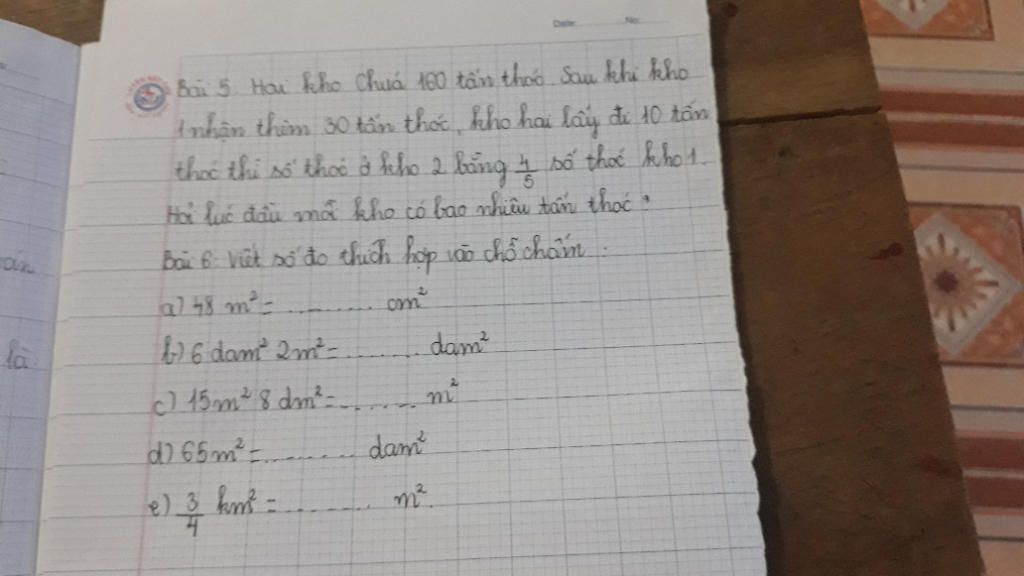 Date: No:
Bài 5. Hai kho chứa 160 tấn thóc. Sau khi kho
1 nhận thêm 30 tấn thóc, kho hai lấy đi 10 tấn
thóc thì số thóc ở kho 2 bằng 4/5 số thóc kho 1.
Hỏi lúc đầu mỗi kho có bao nhiêu tấn thóc?
Bài 6: Viết số đo thích hợp vào chỗ chấm:
a) 48 m² = ......... cm²
b) 6 dam² 2m² = ....... dam²
c) 15m² 8 dm² = ....... m²
d) 65m² = ......... dam²
e) 3/4 km² = ......... m².
là